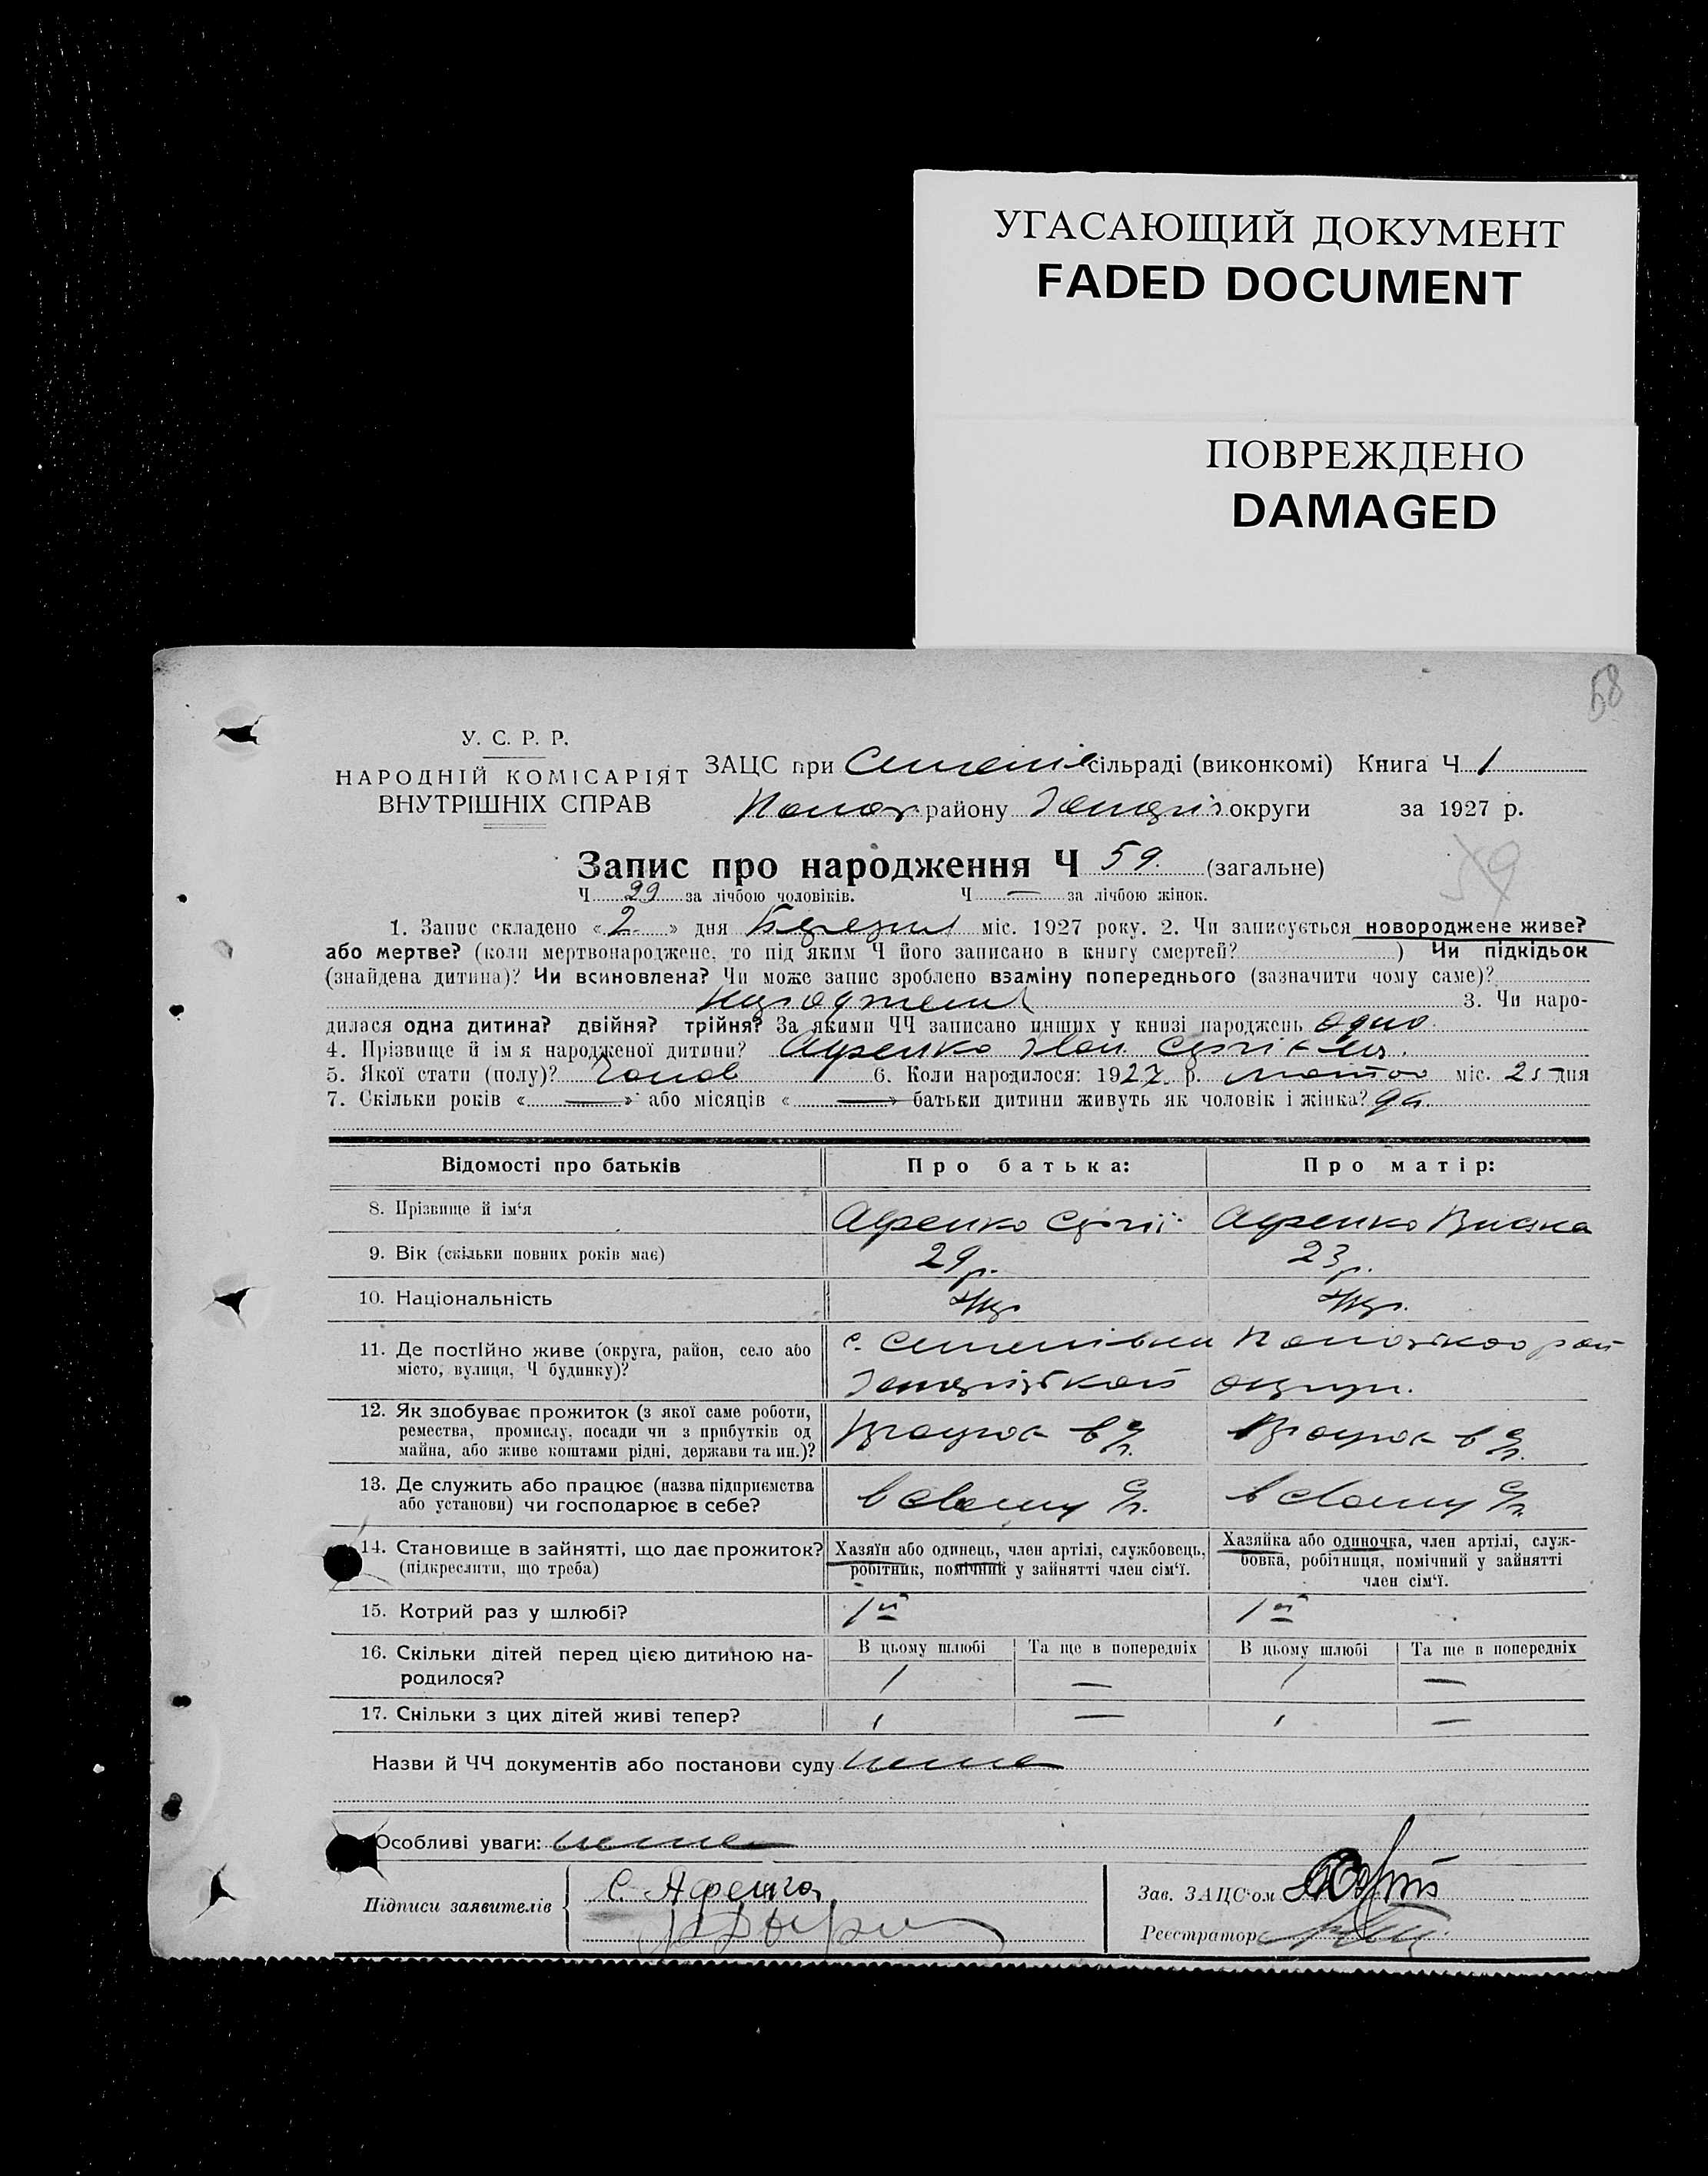 УГАСАЮЩИЙ ДОКУМЕНТ
FADED DOCUMENT
ПОВРЕЖДЕНО
DAMAGED
58
У. С. Р. Р.
НАРОДНІЙ КОМІСАРІЯТ
ВНУТРІШНІХ СПРАВ
ЗАЦС при сільраді (виконкомі) Книга Ч 1
району округи за 1927 р.
Запис про народження Ч 59. (загальне)
59
Ч 29 за лічбою чоловіків. Ч — за лічбою жінок.
1. Запис складено « 2 » дня Березня міс. 1927 року. 2. Чи записується новороджене живе?
або мертве? (коли мертвонароджене, то під яким Ч його записано в книгу смертей? ) Чи підкідьок
(знайдена дитина)? Чи всиновлена? Чи може запис зроблено взаміну попереднього (зазначити чому саме)?
3. Чи наро-
дилася одна дитина? двійня? трійня? За якими ЧЧ записано инших у книзі народжень одно
4. Прізвище й імя народженої дитини? Афенко Іван
5. Якої стати (полу)? Чолов 6. Коли народилося: 1927 р. міс. 25 дня
7. Скільки років « — » або місяців « — » батьки дитини живуть як чоловік і жінка? да
Відомості про батьків Про батька: Про матір:
8. Прізвище й ім'я Афенко Сергій Афенко
9. Вік (скільки повних років має) 29 р. 23 р.
10. Національність Укр Укр.
11. Де постійно живе (округа, район, село або
місто, вулиця, Ч будинку)?
с. Семенівки рай
округи.
12. Як здобуває прожиток (з якої саме роботи,
ремества, промислу, посади чи з прибутків од
майна, або живе коштами рідні, держави та ин.)?
13. Де служить або працює (назва підприємства
або установи) чи господарює в себе?
в свому в свому
14. Становище в зайнятті, що дає прожиток?
(підкреслити, що треба)
Хазяїн або одинець, член артілі, службовець,
робітник, помічний у зайнятті член сім'ї.
Хазяйка або одиночка, член артілі, служ-
бовка, робітниця, помічний у зайнятті
член сім'ї.
15. Котрий раз у шлюбі? 1й 1й
16. Скільки дітей перед цією дитиною на-
родилося?
В цьому шлюбі Та ще в попередніх В цьому шлюбі Та ще в попередніх
1 — 1 —
17. Скільки з цих дітей живі тепер? 1 — 1 —
Назви й ЧЧ документів або постанови суду нема
Особливі уваги: нема
Підписи заявителів
С. Афенко
Зав. ЗАЦС'ом
Реєстратор